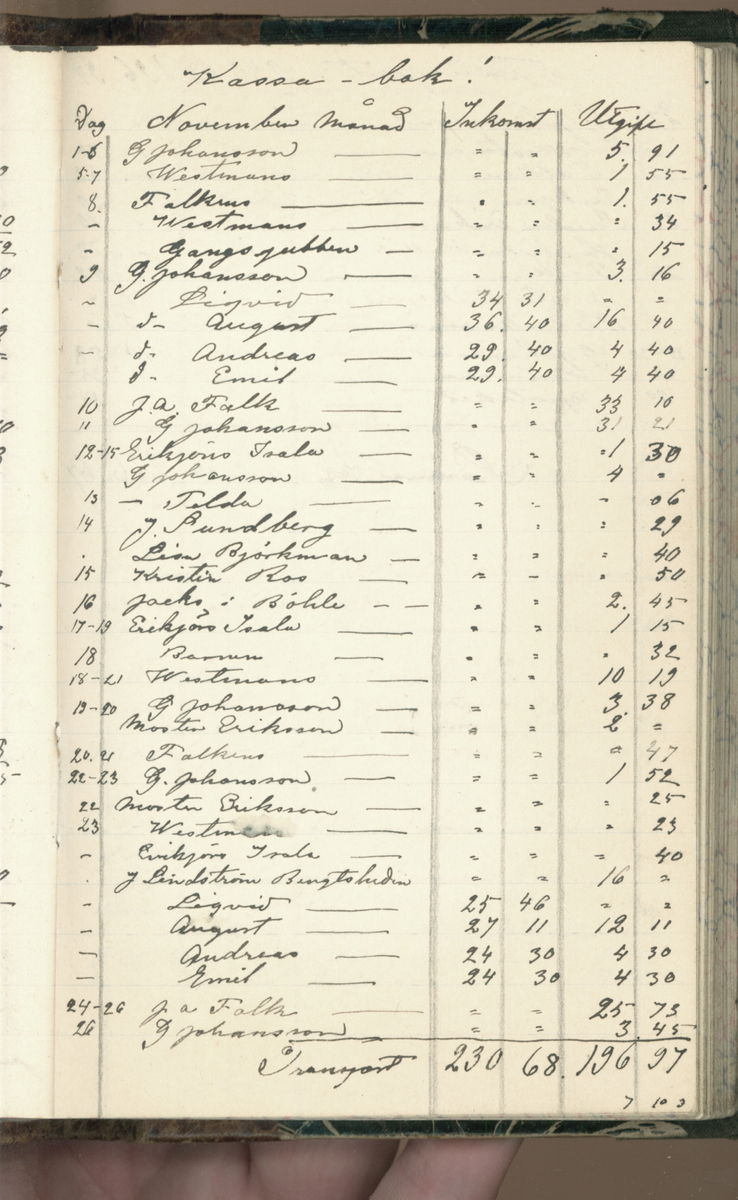 Kassa - bok!
Dag November månad Inkomst Utgift
1-5 G Johansson — " " 5. 91
5-7 Westmans — " " 1 55
8. Falkens — " " 1. 55
- Westmans — " " " 34
- Gangsgubben — " " " 15
9 G. Johansson — " " 3. 16
- Liqvid — 34 31 " "
- d- August — 36. 40 16 40
- d- Andreas — 29. 40 4 40
d- Emil — 29. 40 4 40
10 J. a. Falk — " " 33 16
11 G Johansson — " " 31 21
12-15 Erikjörs Isala — " " 1 30
G Johansson — " " 4 "
13 - Tilda — " " - 06
14 J. Sundberg — " " " 29
. Lisa Björkman — " " " 40
15 Kristin Ros — " - " 50
16 Jacks i Böhle - - " " 2. 45
17-19 Erikjörs Isala — " " 1 15
18 — " " " 32
18-21 Westmans — " " 10 19
19-20 G Johansson — " " 3. 38
Moster Eriksson — " " 2 "
20.21 Falkens — " " " 47
22-23 G. Johansson — " " 1 52
22 Moster Eriksson — " " " 25
23 Westmans — " " " 23
- Erikjörs Isala — " " " 40
. J Lindström Bengtsheden " " 16 "
Liqvid — 25 46 " "
- August — 27 11 12 11
- Andreas — 24 30 4 30
- Emil — 24 30 4 30
24-26 J a Falk — " " 25 73
26 G Johansson — " " 3 45
Transport 230 68. 196 97
7 10 3